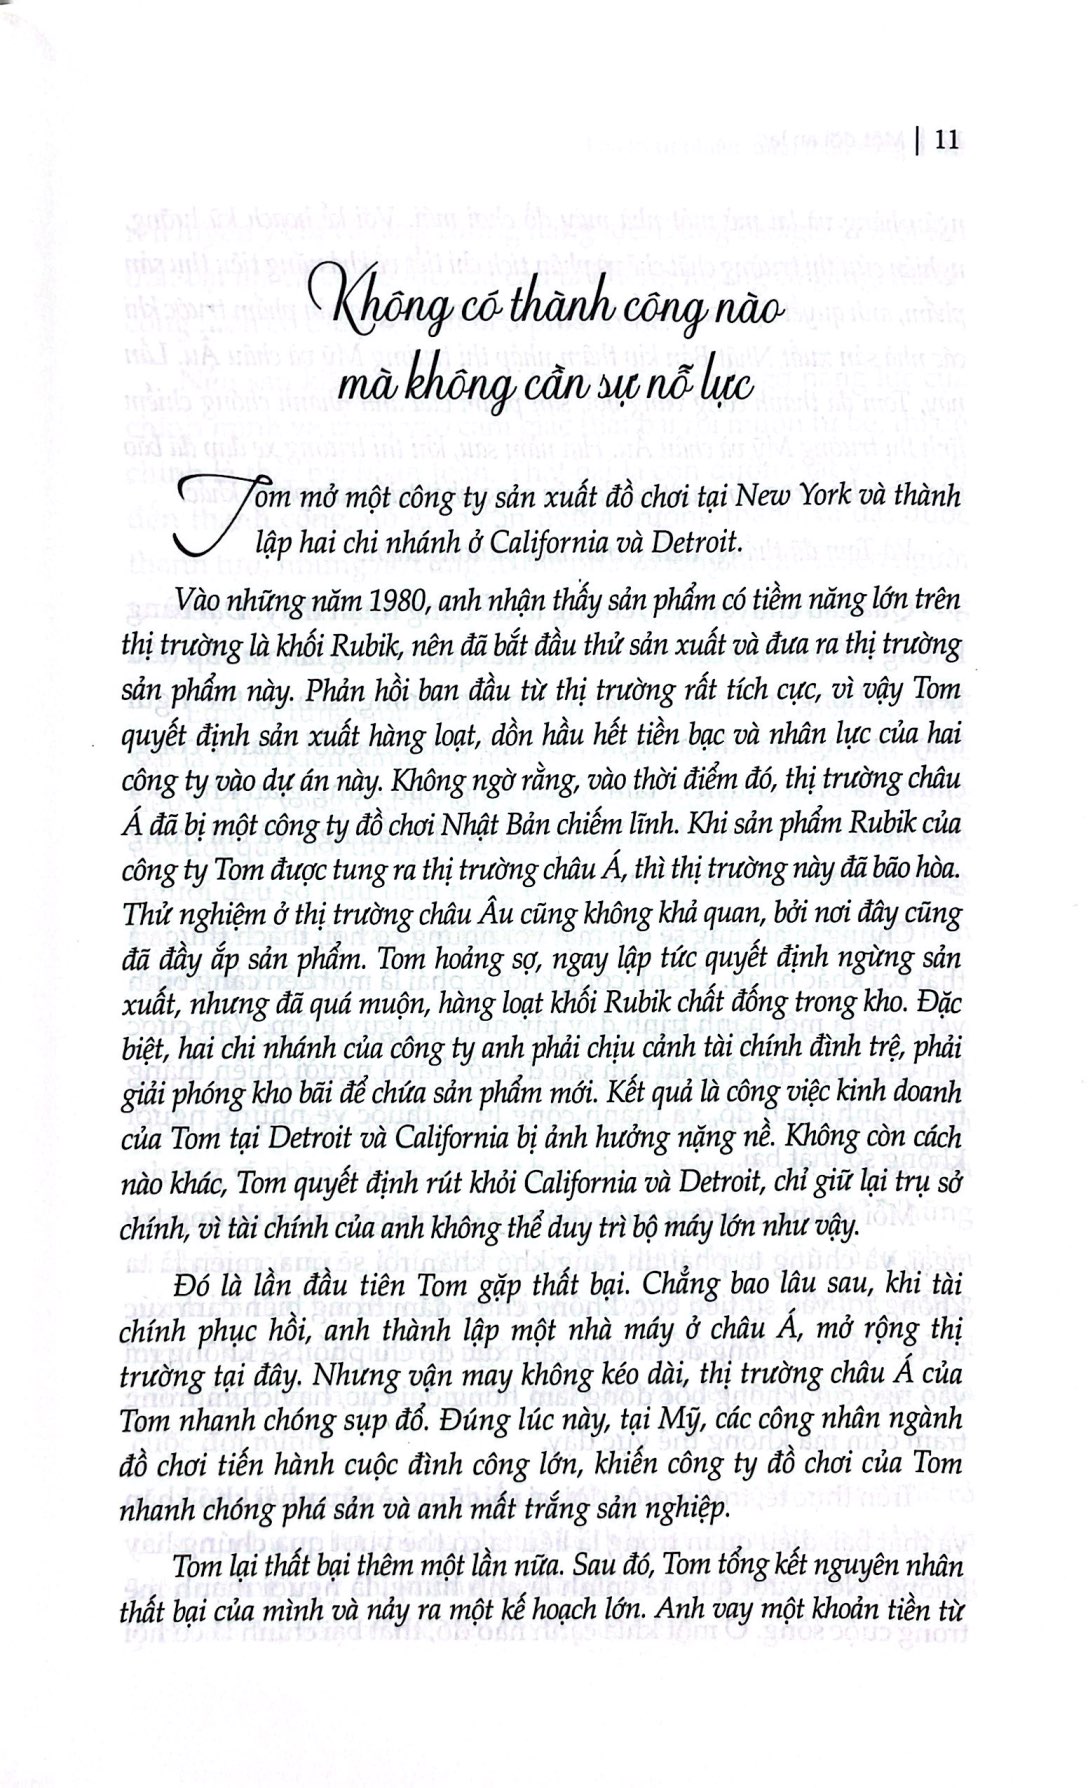 | 11
Không có thành công nào
mà không cần sự nỗ lực
Tom mở một công ty sản xuất đồ chơi tại New York và thành
lập hai chi nhánh ở California và Detroit.
Vào những năm 1980, anh nhận thấy sản phẩm có tiềm năng lớn trên
thị trường là khối Rubik, nên đã bắt đầu thử sản xuất và đưa ra thị trường
sản phẩm này. Phản hồi ban đầu từ thị trường rất tích cực, vì vậy Tom
quyết định sản xuất hàng loạt, dồn hầu hết tiền bạc và nhân lực của hai
công ty vào dự án này. Không ngờ rằng, vào thời điểm đó, thị trường châu
Á đã bị một công ty đồ chơi Nhật Bản chiếm lĩnh. Khi sản phẩm Rubik của
công ty Tom được tung ra thị trường châu Á, thì thị trường này đã bão hòa.
Thử nghiệm ở thị trường châu Âu cũng không khả quan, bởi nơi đây cũng
đã đầy ắp sản phẩm. Tom hoảng sợ, ngay lập tức quyết định ngừng sản
xuất, nhưng đã quá muộn, hàng loạt khối Rubik chất đống trong kho. Đặc
biệt, hai chi nhánh của công ty anh phải chịu cảnh tài chính đình trệ, phải
giải phóng kho bãi để chứa sản phẩm mới. Kết quả là công việc kinh doanh
của Tom tại Detroit và California bị ảnh hưởng nặng nề. Không còn cách
nào khác, Tom quyết định rút khỏi California và Detroit, chỉ giữ lại trụ sở
chính, vì tài chính của anh không thể duy trì bộ máy lớn như vậy.
Đó là lần đầu tiên Tom gặp thất bại. Chẳng bao lâu sau, khi tài
chính phục hồi, anh thành lập một nhà máy ở châu Á, mở rộng thị
trường tại đây. Nhưng vận may không kéo dài, thị trường châu Á của
Tom nhanh chóng sụp đổ. Đúng lúc này, tại Mỹ, các công nhân ngành
đồ chơi tiến hành cuộc đình công lớn, khiến công ty đồ chơi của Tom
nhanh chóng phá sản và anh mất trắng sản nghiệp.
Tom lại thất bại thêm một lần nữa. Sau đó, Tom tổng kết nguyên nhân
thất bại của mình và nảy ra một kế hoạch lớn. Anh vay một khoản tiền từ